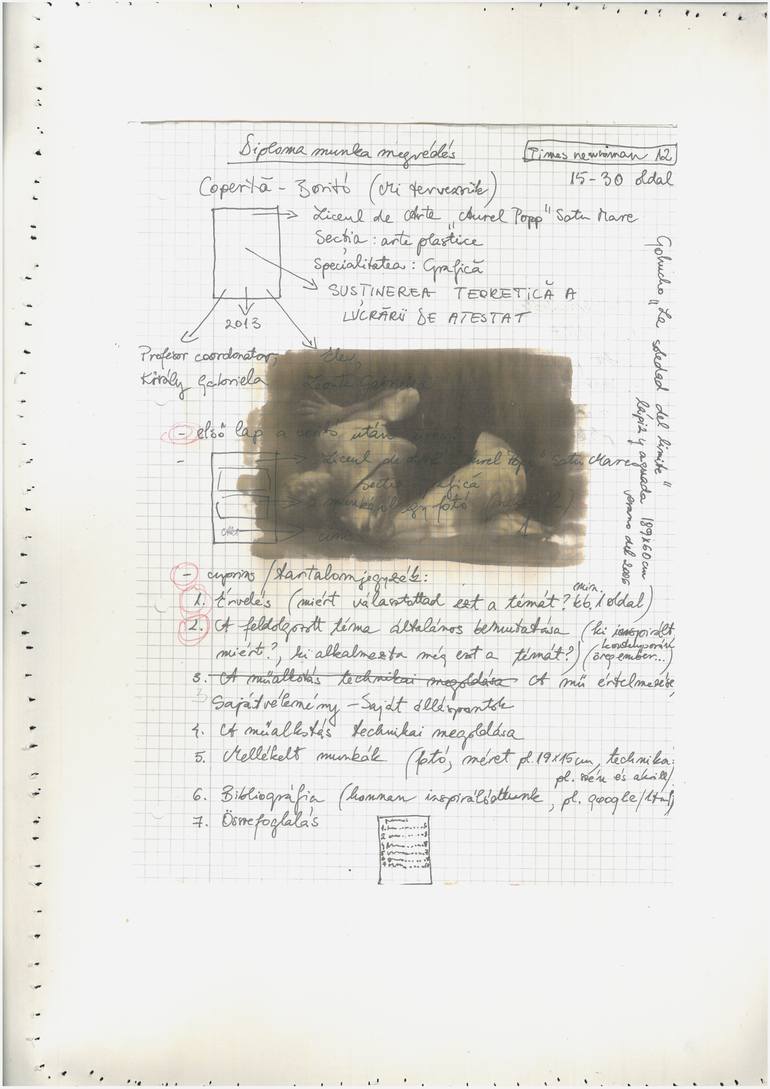 Diploma munka megvédés
Times newroman 12
15-30 oldal
Copertă - Borító (Mi tervezzük)
Liceul de Arte "Aurel Popp" Satu Mare
Secția: arte plastice
Specialitatea: Grafică
SUSȚINEREA TEORETICĂ A
LUCRĂRII DE ATESTAT
2013
Profesor coordonator,
Király Gabriela
Elev,
- első lap a borító után
- Liceul de Arte "Aurel Popp" Satu Mare
Secția Grafică
fotó
cím
- cuprins / tartalomjegyzék:
1. Érvelés (miért választottad ezt a témát? min. kb. 1 oldal)
2. A feldolgozott téma általános bemutatása (ki inspirált,
miért?, ki alkalmazta még ezt a témát?) (ősember...)
3. A műalkotás technikai megoldása A mű értelmezése,
Saját vélemény - Saját álláspontok
4. A műalkotás technikai megoldása
5. Mellékelt munkák (fotó, méret pl. 19x15cm, technika:
pl. szén és akrill)
6. Bibliográfia (honnan inspirálódtunk, pl. google/html)
7. Összefoglalás
Golucho "La soledad del limite"
lápiz y aguada 189x60cm
verano del 2006